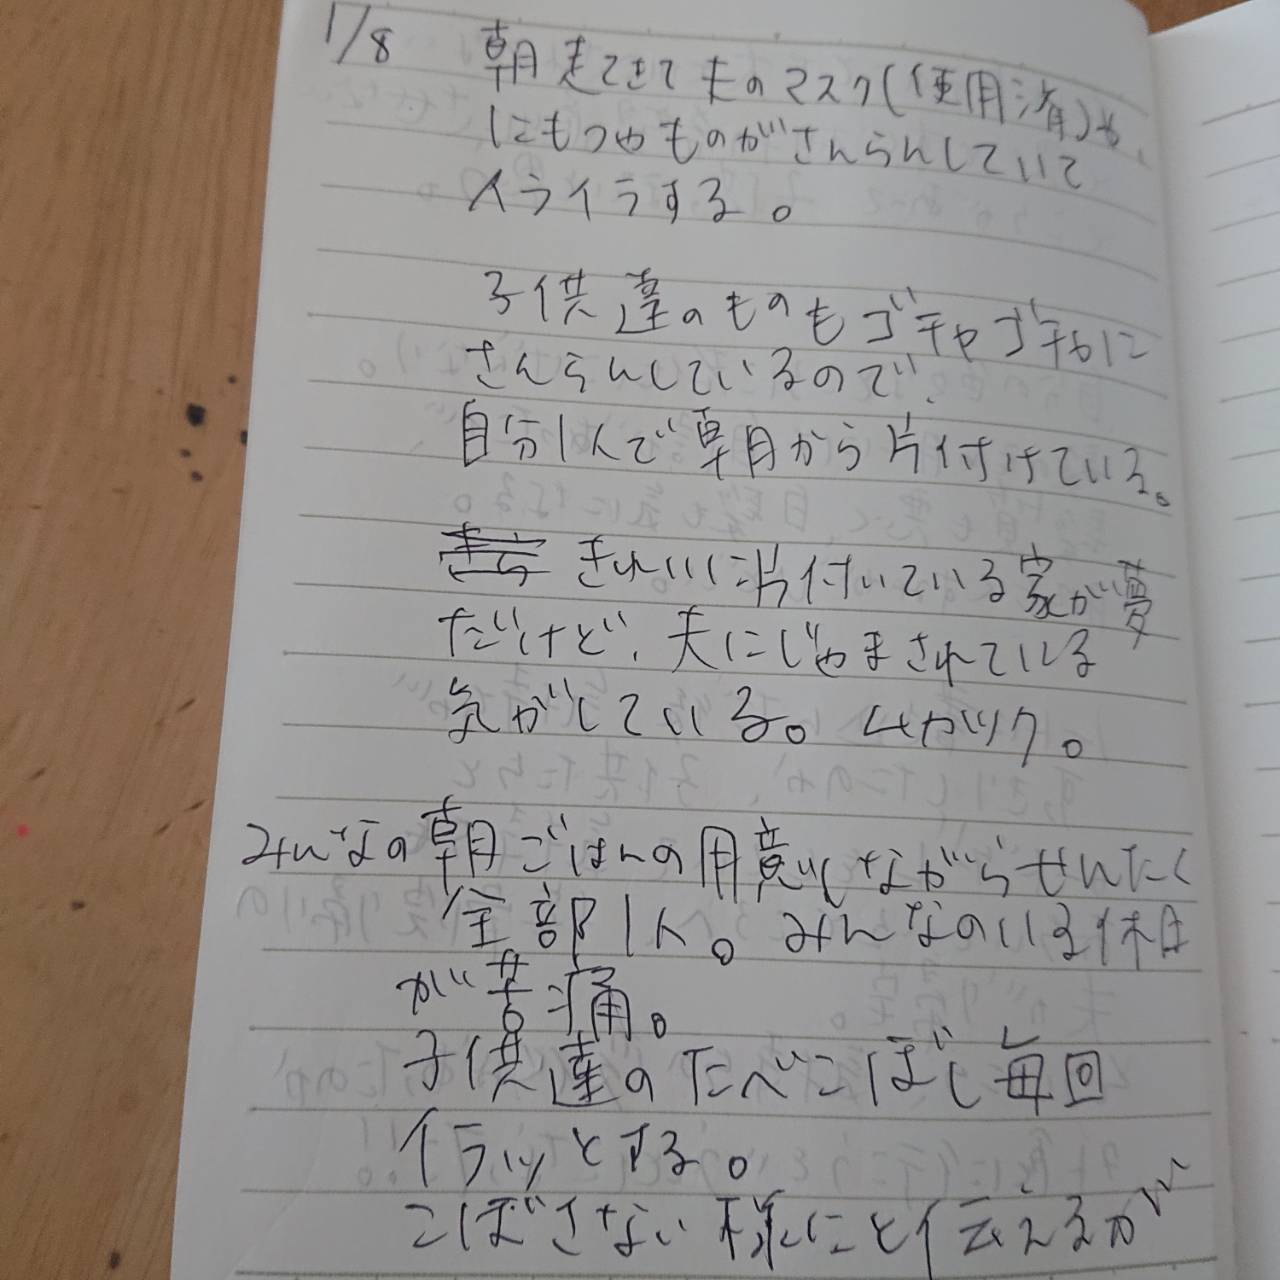 1/8 朝起きてきて夫のマスク(使用済)や、
にもつやものがさんらんしていて
イライラする。
子供達のものもゴチャゴチャに
さんらんしているので、
自分1人で朝から片付けている。
きれいに片付いている家が夢
だけど、夫にじゃまされている
気がしている。ムカツク。
みんなの朝ごはんの用意しながらせんたく
全部1人。みんなのいる休日
が苦痛。
子供達のたべこぼし毎回
イラッとする。
こぼさない様にと伝えるが